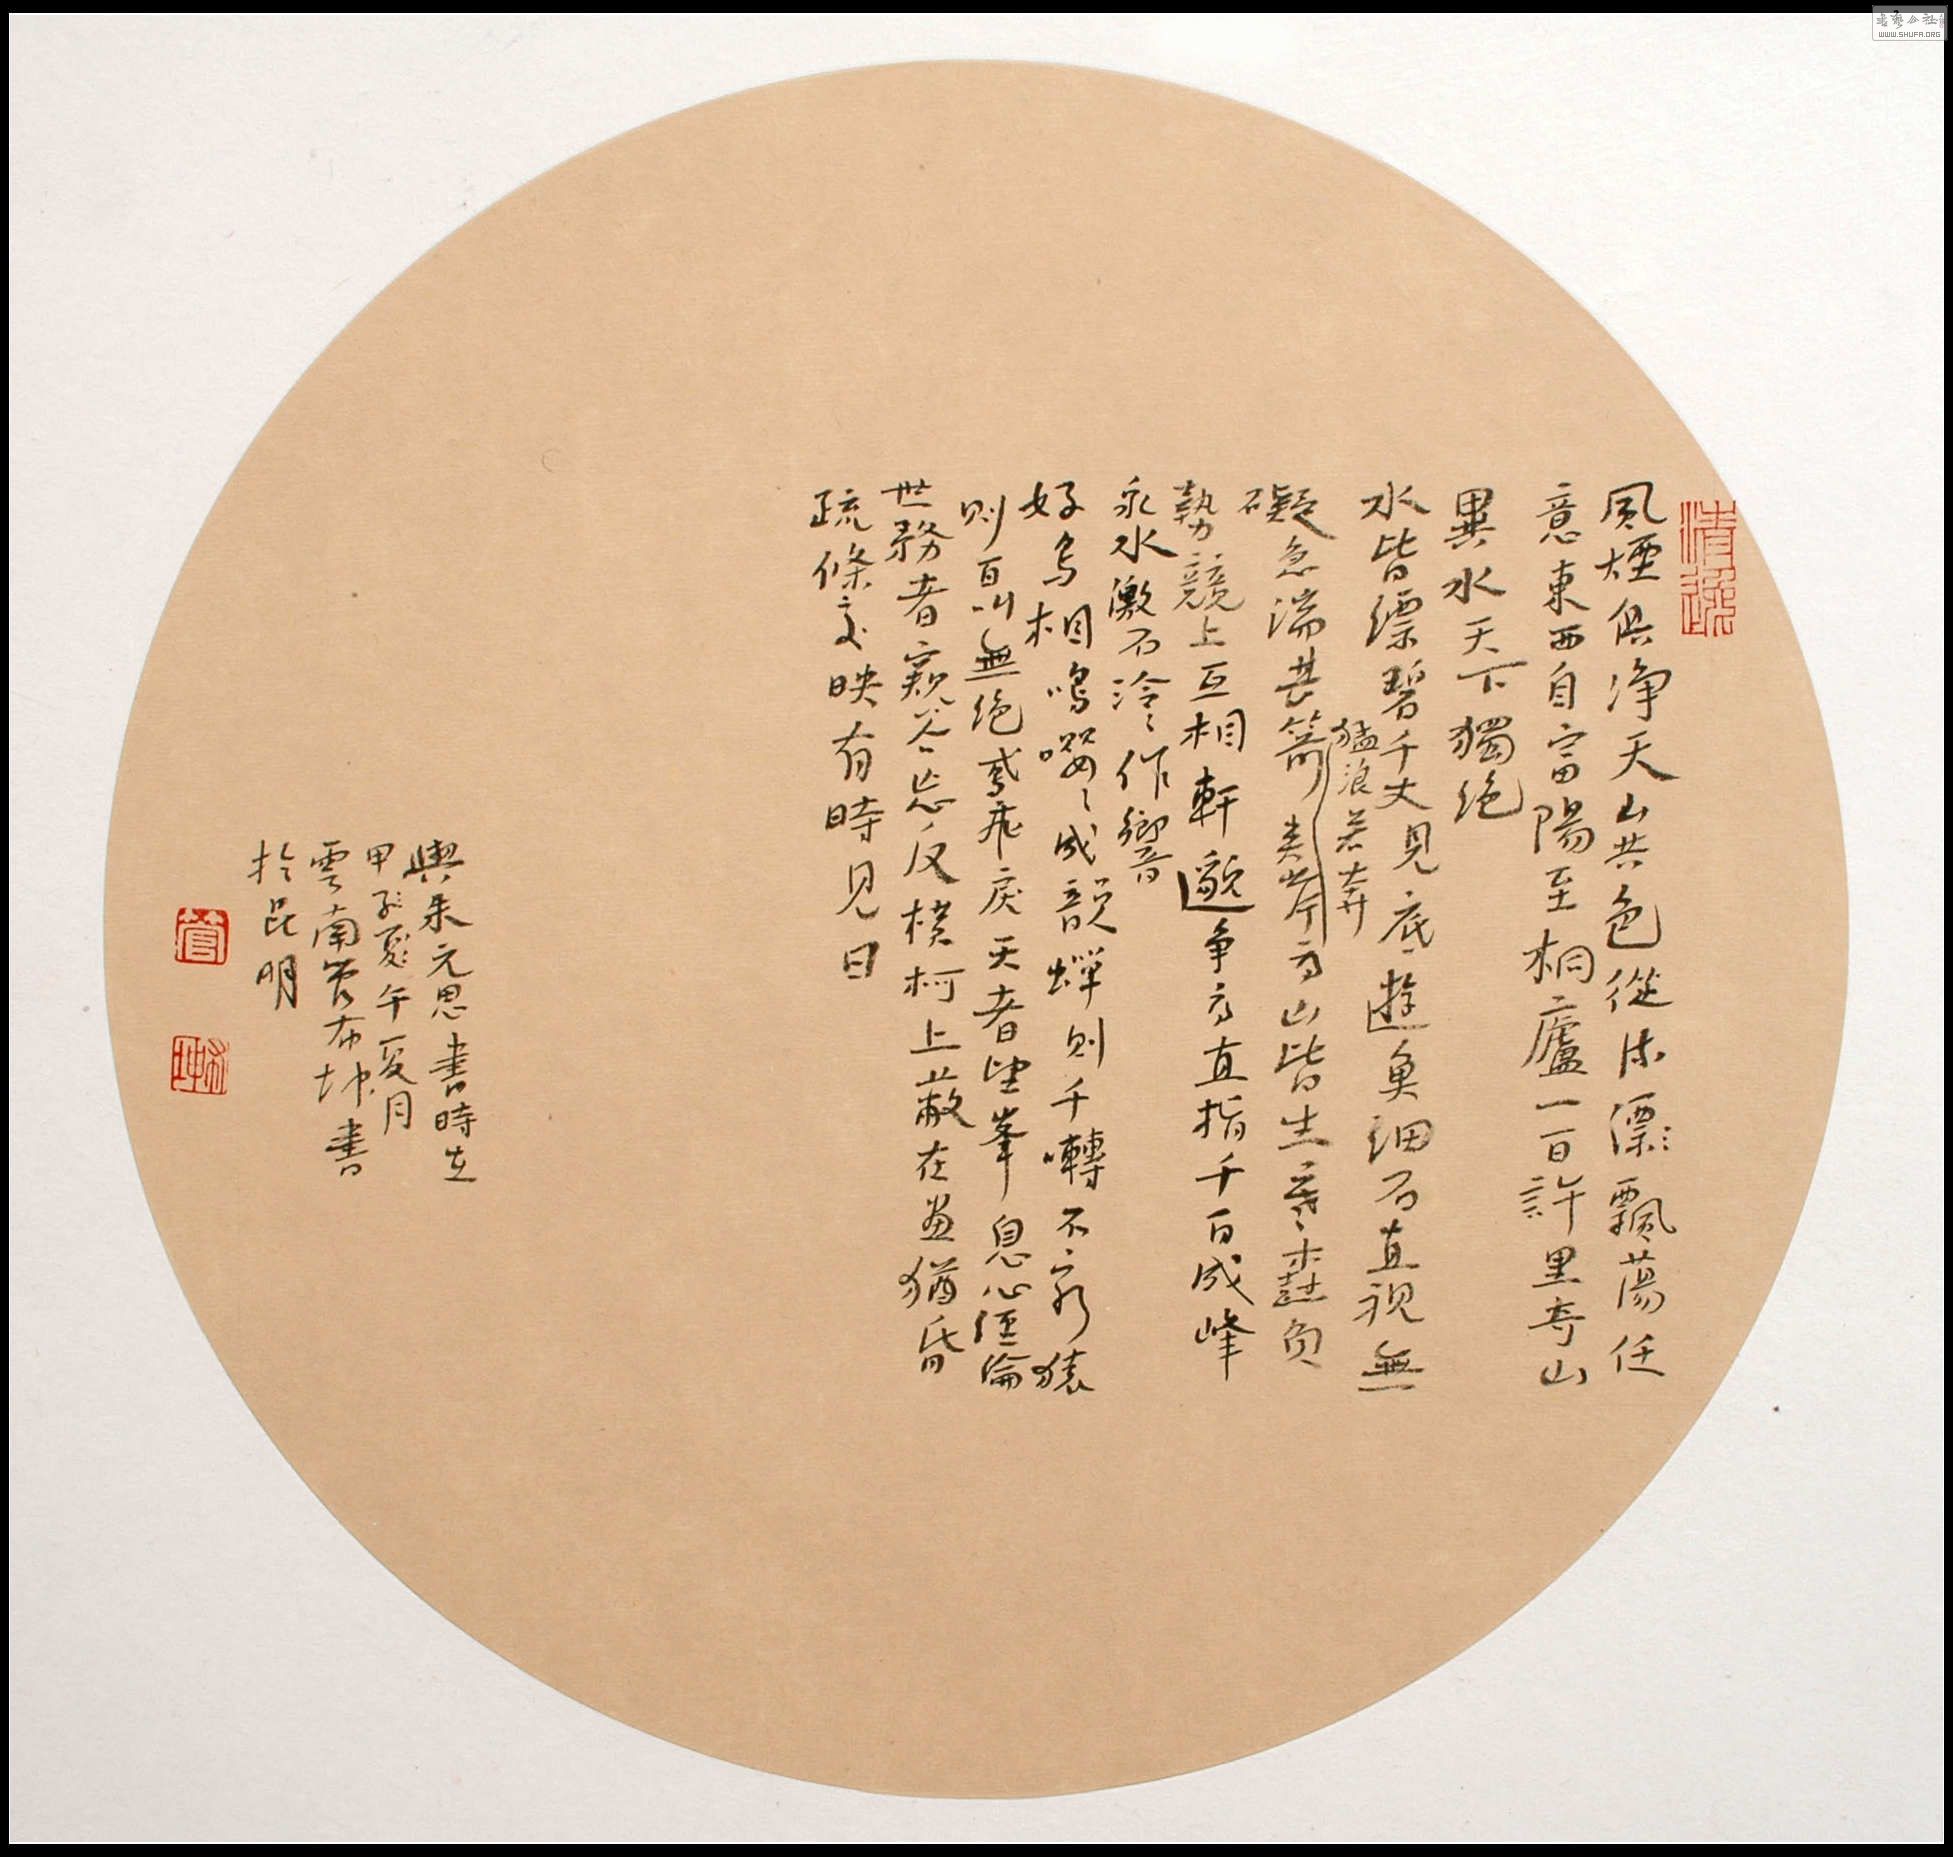 風煙俱淨天山共色從流漂飄蕩任
意東西自富陽至桐廬一百許里奇山
異水天下獨絕
水皆縹碧千丈見底遊魚細石直視無
猛浪若奔
礙急湍甚箭夾岸高山皆生寒樹負
勢競上互相軒邈爭高直指千百成峰
泉水激石泠〻作響
好鳥相鳴嚶〻成韻蟬則千囀不窮猿
則百叫無絕鳶飛戾天者望峯息心經綸
世務者窺谷忘反橫柯上蔽在晝猶昏
疏條交映有時見日
與朱元思書時在
甲子夏午夏月
雲南管布坤書
於昆明
管
WWW.SHUFA.ORG